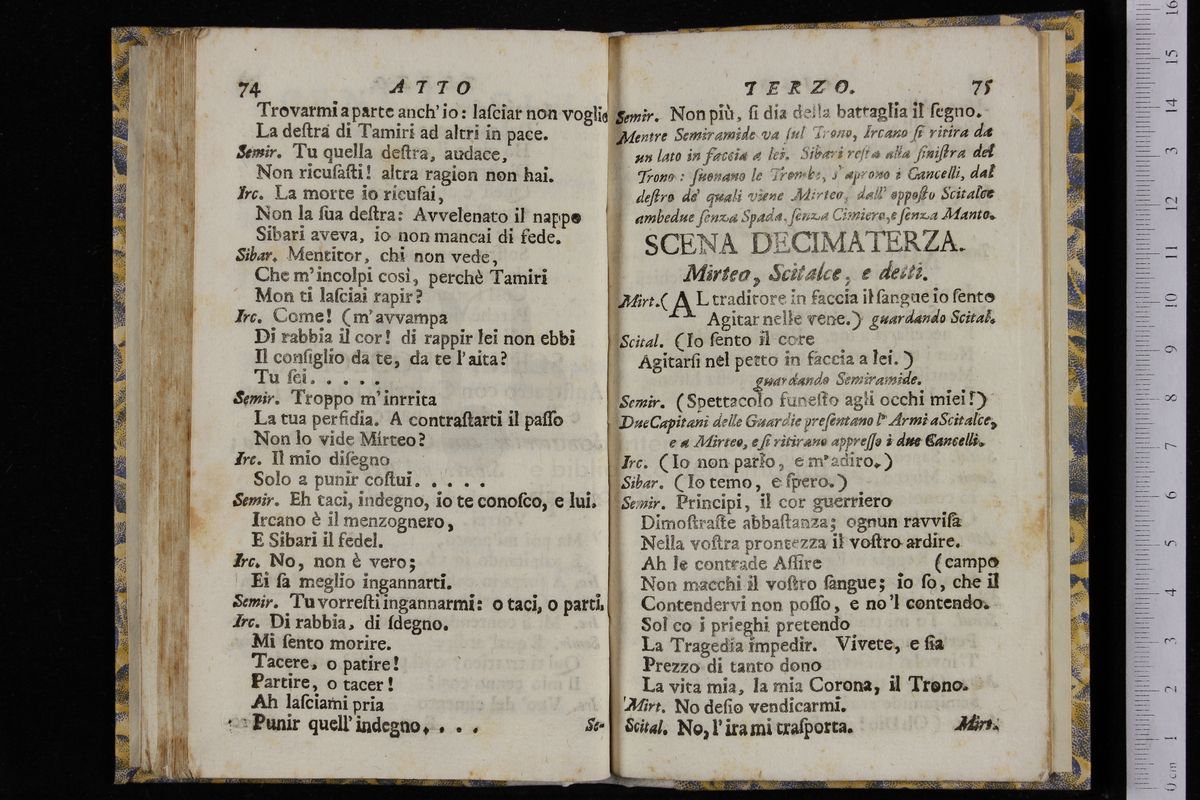 74 ATTO
Trovarmi a parte anch' io: laſciar non voglio
La deſtra di Tamiri ad altri in pace.
Semir. Tu quella deſtra, audace,
Non ricuſaſti! altra ragion non hai.
Irc. La morte io ricuſai,
Non la ſua deſtra: Avvelenato il nappo
Sibari aveva, io non mancai di fede.
Sibar. Mentitor, chi non vede,
Che m'incolpi così, perchè Tamiri
Mon ti laſciai rapir?
Irc. Come! (m'avvampa
Di rabbia il cor! di rappir lei non ebbi
Il conſiglio da te, da te l'aita?
Tu ſei. . . . .
Semir. Troppo m'inrrita
La tua perfidia. A contraſtarti il paſſo
Non lo vide Mirteo?
Irc. Il mio diſegno
Solo a punir coſtui. . . . .
Semir. Eh taci, indegno, io te conoſco, e lui.
Ircano è il menzognero,
E Sibari il fedel.
Irc. No, non è vero;
Ei ſa meglio ingannarti.
Semir. Tu vorreſti ingannarmi: o taci, o parti.
Irc. Di rabbia, di ſdegno.
Mi ſento morire.
Tacere, o patire!
Partire, o tacer!
Ah laſciami pria
Punir quell' indegno. . . .
Se-
TERZO. 75
Semir. Non più, ſi dia della battaglia il ſegno.
Mentre Semiramide va ſul Trono, Ircano ſi ritira da
un lato in faccia a lei. Sibari reſta alla ſiniſtra del
Trono: ſuonano le Trombe, s'aprono i Cancelli, dal
deſtro de' quali viene Mirteo, dall' oppoſto Scitalce
ambedue ſenza Spada, ſenza Cimiero, e ſenza Manto.
SCENA DECIMATERZA.
Mirteo, Scitalce, e detti.
Mirt. (AL traditore in faccia il ſangue io ſento
Agitar nelle vene.) guardando Scital.
Scital. (Io ſento il core
Agitarſi nel petto in faccia a lei.)
guardando Semiramide.
Semir. (Spettacolo funeſto agli occhi miei!)
Due Capitani delle Guardie preſentano l' Armi a Scitalce,
e a Mirteo, e ſi ritirano appreſſo i due Cancelli.
Irc. (Io non parlo, e m'adiro.)
Sibar. (Io temo, e ſpero.)
Semir. Principi, il cor guerriero
Dimoſtraſte abbaſtanza; ognun ravviſa
Nella voſtra prontezza il voſtro ardire.
Ah le contrade Aſſire (campo
Non macchi il voſtro ſangue; io ſo, che il
Contendervi non poſſo, e no'l contendo.
Sol co i prieghi pretendo
La Tragedia impedir. Vivete, e ſia
Prezzo di tanto dono
La vita mia, la mia Corona, il Trono.
Mirt. No deſio vendicarmi.
Scital. No, l'ira mi traſporta.
Mirt.
0 cm 1 2 3 4 5 6 7 8 9 10 11 12 3 14 15 16